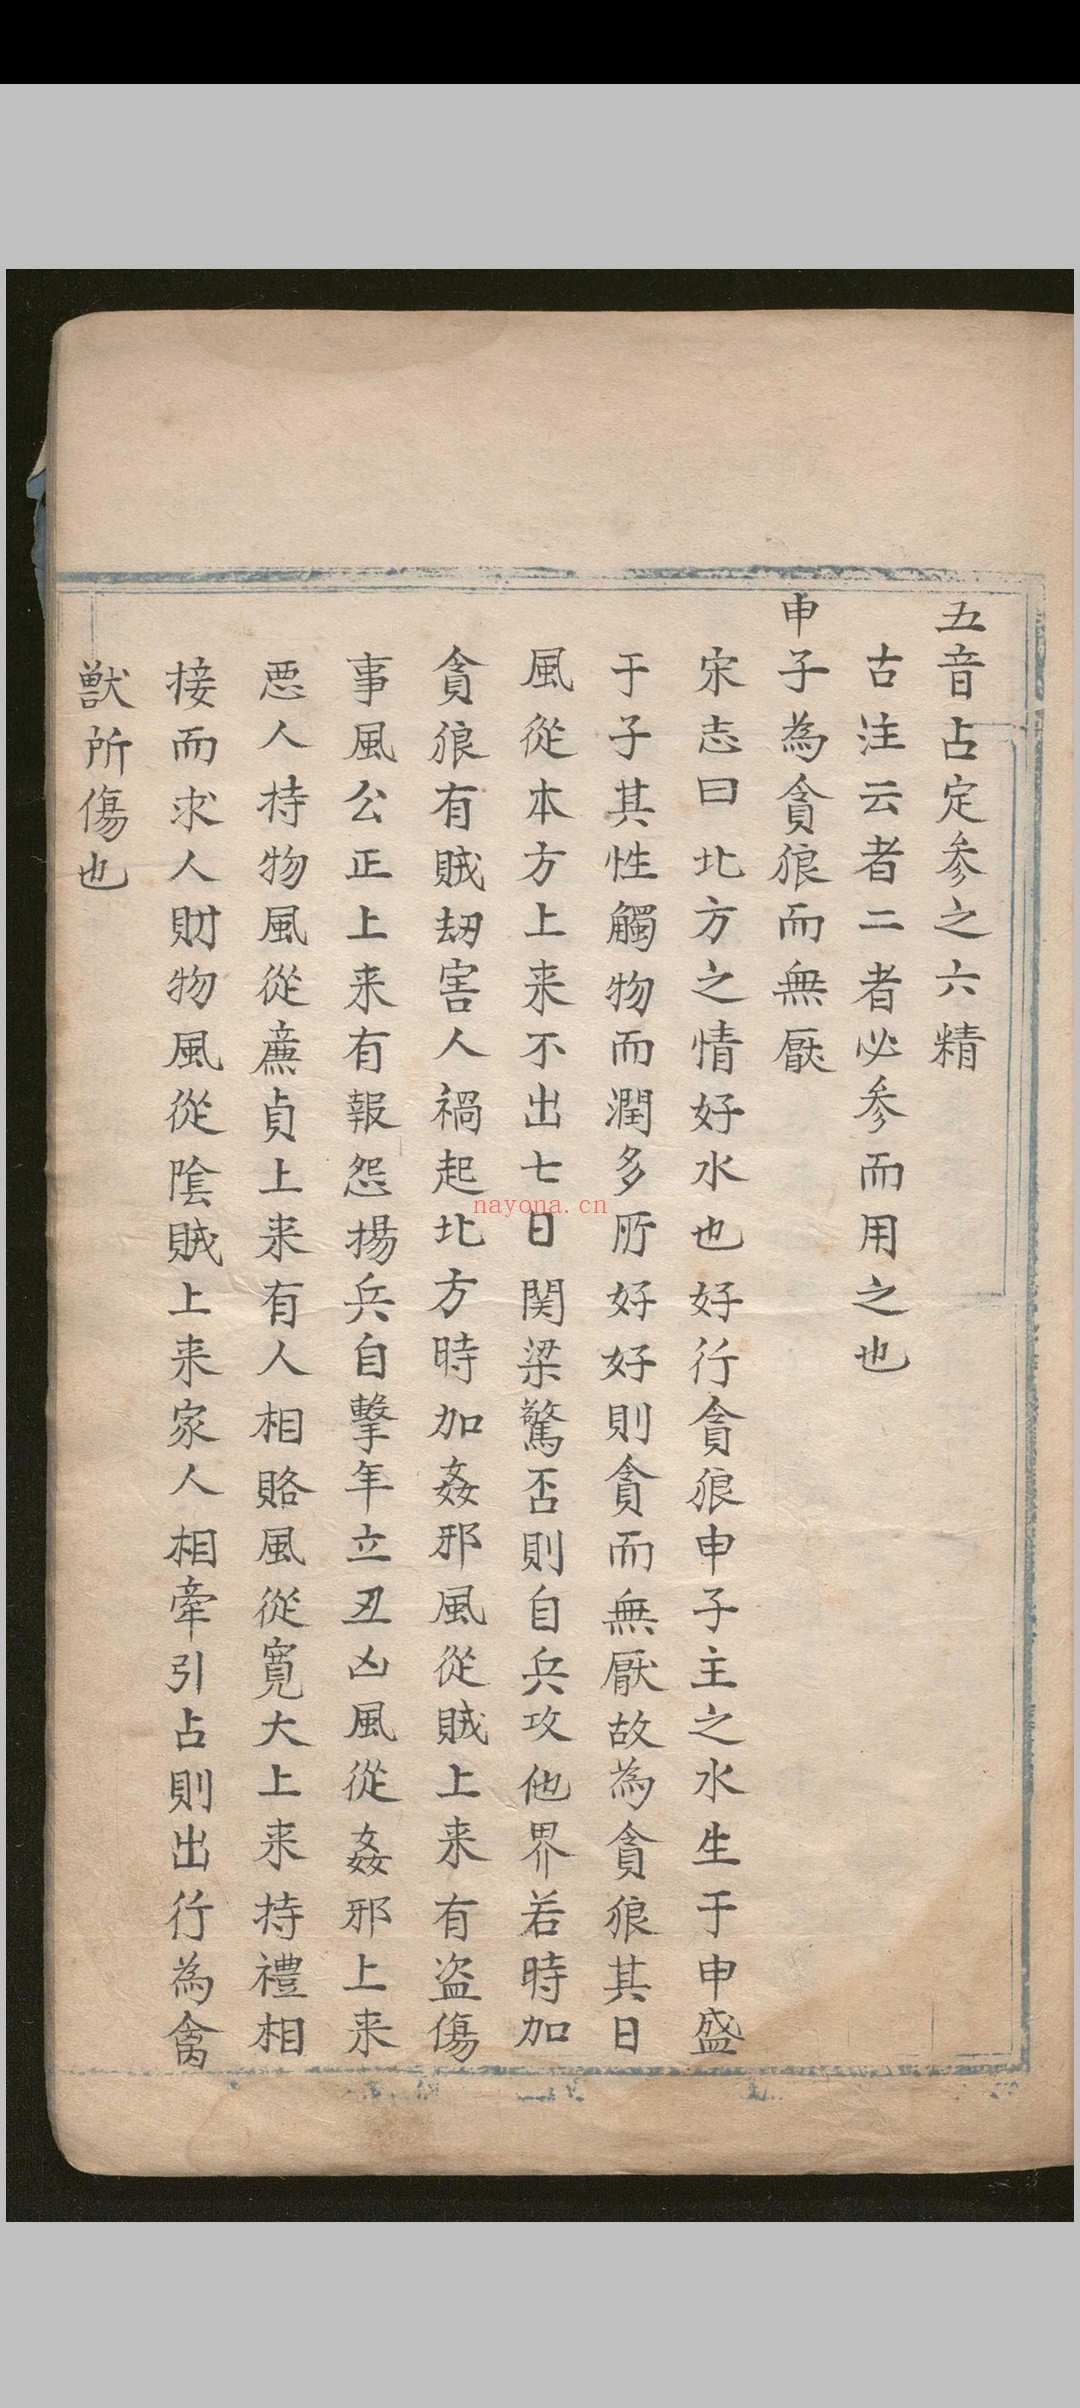 五音占定参之六精
古注云者二者必参而用之也
申子為貪狼而無厭
宋志曰北方之情好水也好行貪狼申子主之水生于申盛
于子其性觸物而潤多所好好則貪而無厭故為貪狼其日
風從本方上来不出七日関梁驚否則自兵攻他界若時加
貪狼有賊刼害人禍起北方時加姦邪風從賊上来有盗傷
事風公正上来有報怨揚兵自擊年立丑凶風從姦邪上来
悪人持物風從亷貞上来有人相賂風從寬大上来持禮相
接而求人財物風從陰賊上来家人相牽引占則出行為禽
獣所傷也
nayona.cn